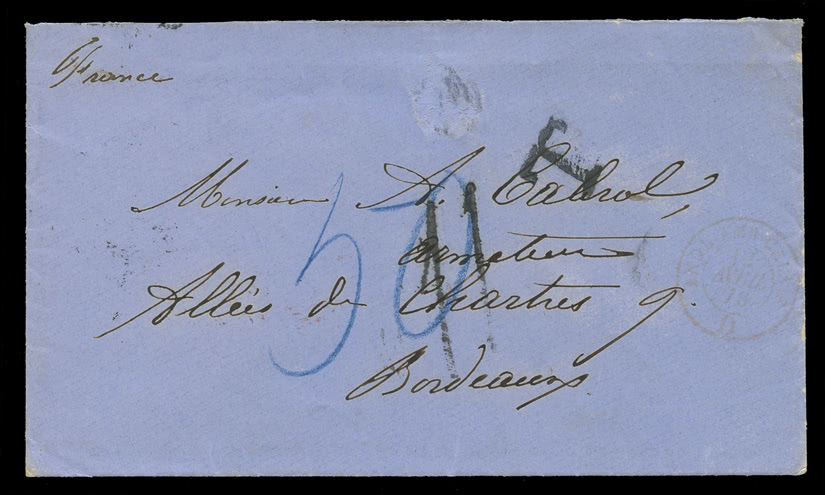 France
Monsieur A. Cabrol,
armateur
Allées de Chartres 9.
Bordeaux
50
T